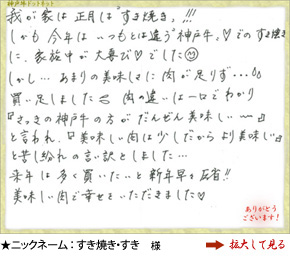 神戸牛ドットネット
我が家は正月は"すき焼き"!!!
しかも今年はいつもとは違う神戸牛♡でのすき焼き
に、家族中が大喜び♡でした☺
しかし…あまりの美味しさに肉が足りず…
買い足しました 肉の違いは一口でわかり
『さっきの神戸牛の方がだんぜん美味しい〜』
と言われ、『美味しい肉は少しだからより美味しい』
と苦し紛れの言い訳としました…
来年は多く買いたいと新年早々反省!!
美味しい肉で幸せをいただきました♡
ありがとう
ございます!
★ニックネーム:すき焼き・すき 様
拡大して見る